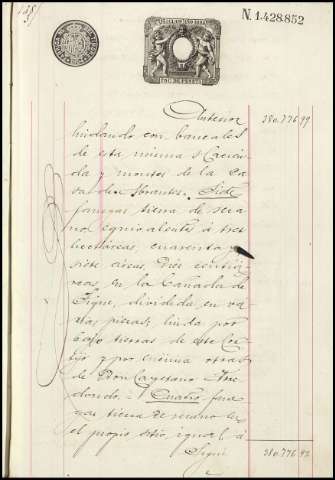 N. 1.428.852
Anterior 380.776.99
lindando con bancales
de esta misma Hacien
da y montes de la Ca
sa de Abrantes. Siete
fanegas tierra de seca
no, equivalentes á tres
hectáreas, cuarenta y
siete áreas, diez centiá
reas, en la Cañada de
Tigue, dividida en va
rias piezas; linda por
bajo tierras de este Cor
tijo y por encima otras
de Don Cayetano
Cuatro fane
gas tierra de secano en
el propio sitio, igual á
Sigue 380.776.99